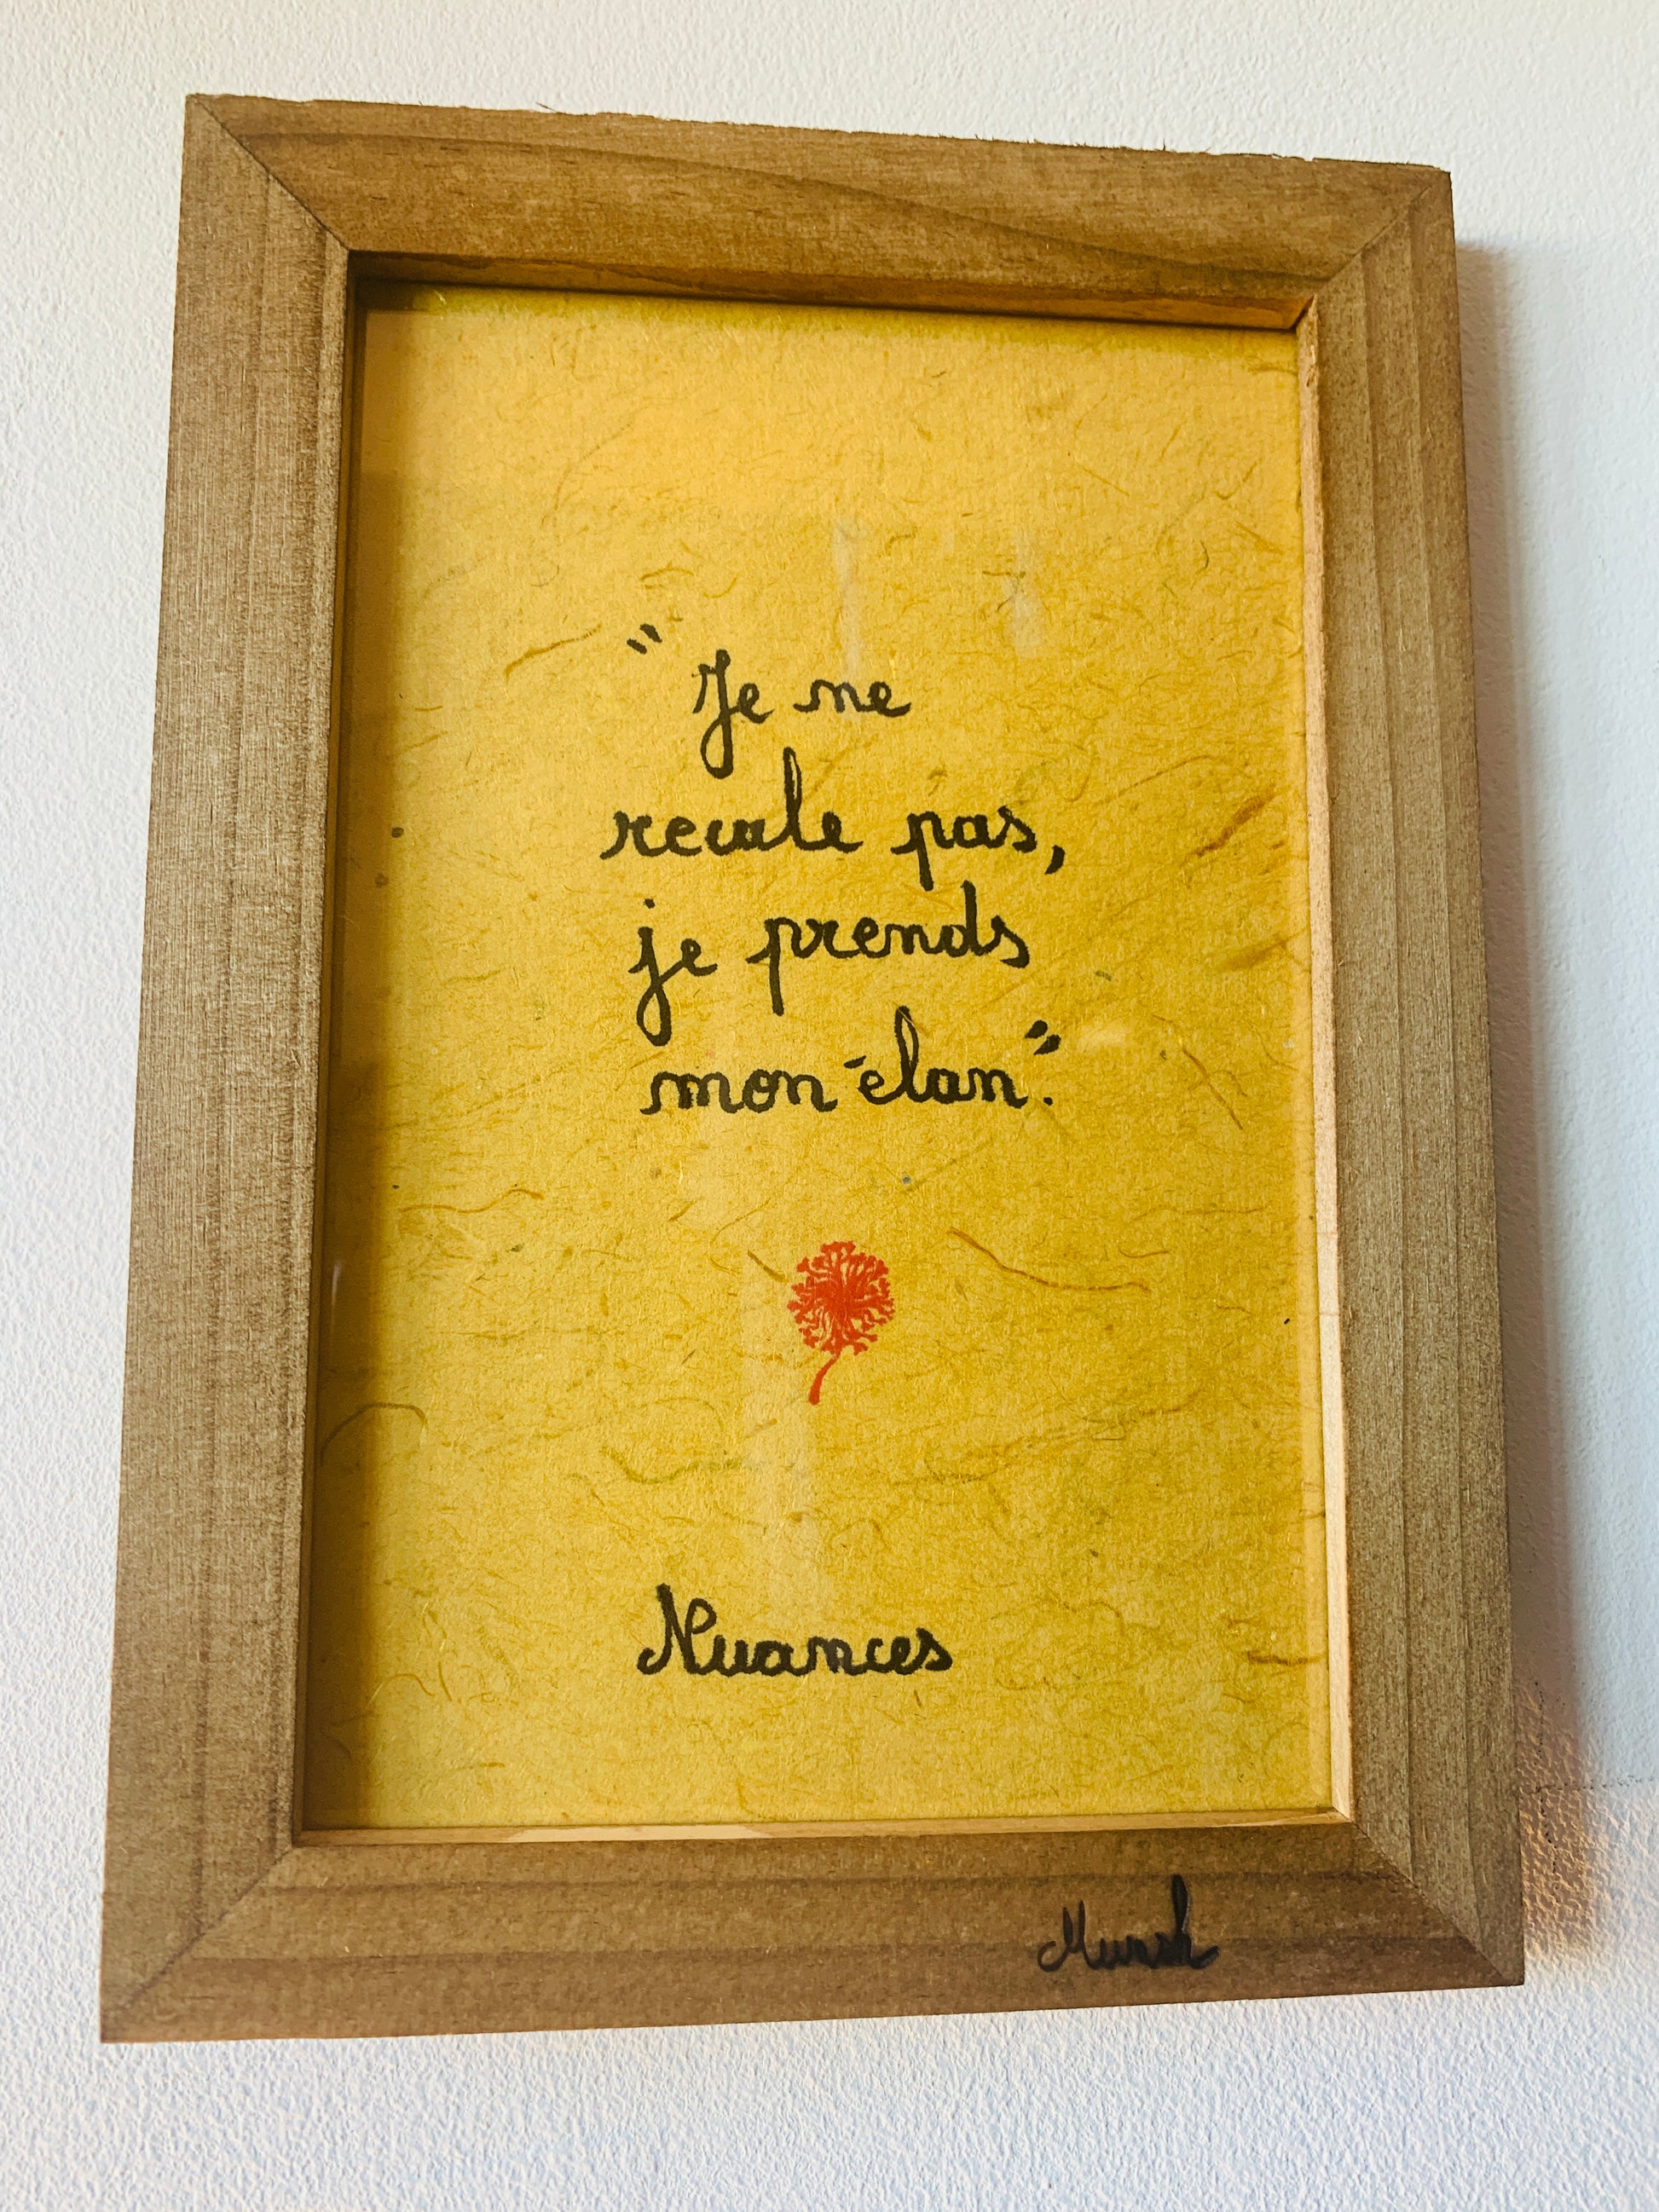 "Je ne
recule pas,
je prends
mon élan".
Nuances